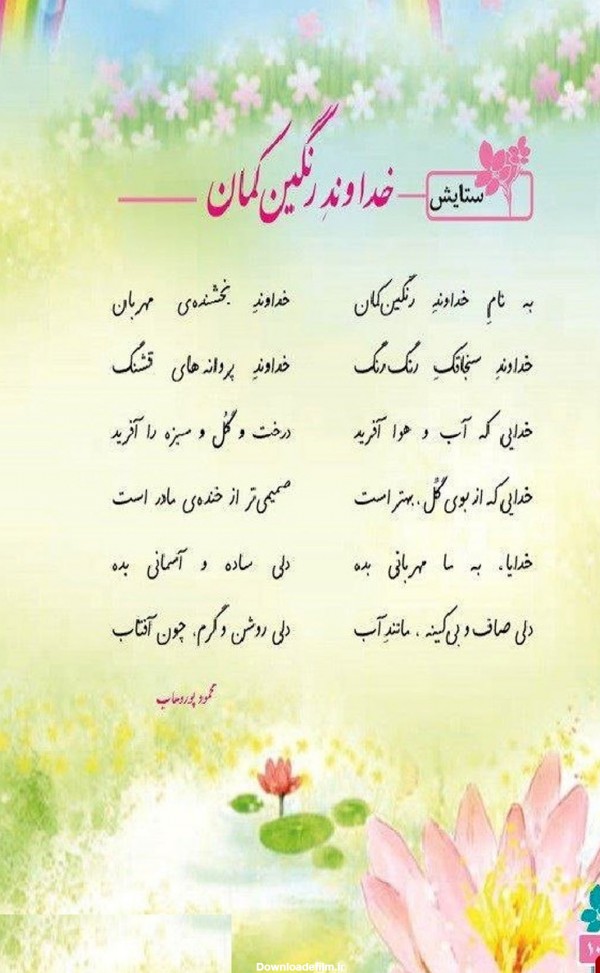 ستایش خداوندِ رنگین کمان
به نامِ خداوندِ رنگین‌کمان خداوندِ بخشنده‌ی مهربان
خداوندِ سنجاقکِ رنگ رنگ خداوندِ پروانه‌های قشنگ
خدایی که آب و هوا آفرید درخت و گُل و سبزه را آفرید
خدایی که از بوی گُل، بهتر است صمیمی‌تر از خنده‌ی مادر است
خدایا، به ما مهربانی بده دلی ساده و آسمانی بده
دلی صاف و بی‌کینه، مانندِ آب دلی روشن و گرم، چون آفتاب
محمود پوروهاب
Downloadefilm.ir